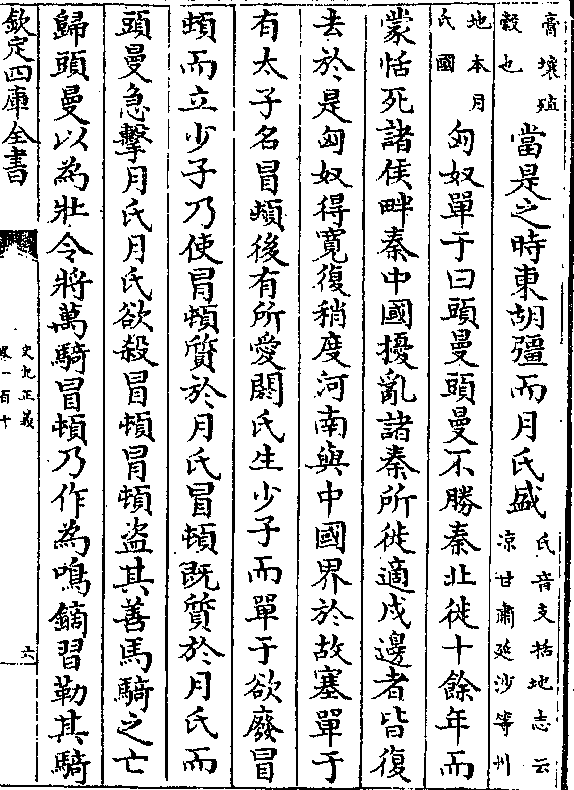 膏壤殖
穀也
當是之時東胡彊而月氏盛
氏音支括地志云
涼甘肅延沙等州
地本月
氏國
匈奴單于曰頭曼頭曼不勝秦北徙十餘年而
蒙恬死諸侯畔秦中國擾亂諸秦所徙適戍邊者皆復
去於是匈奴得寛復稍度河南與中國界於故塞單于
有太子名冒頓後有所愛閼氏生少子而單于欲廢冒
頓而立少子乃使冒頓質於月氏冒頓既質於月氏而
頭曼急擊月氏月氏欲殺冒頓冒頓盜其善馬騎之亡
歸頭曼以為壯令將萬騎冒頓乃作為鳴鏑習勒其騎
欽定四庫全書
史記正義
卷一百十
六